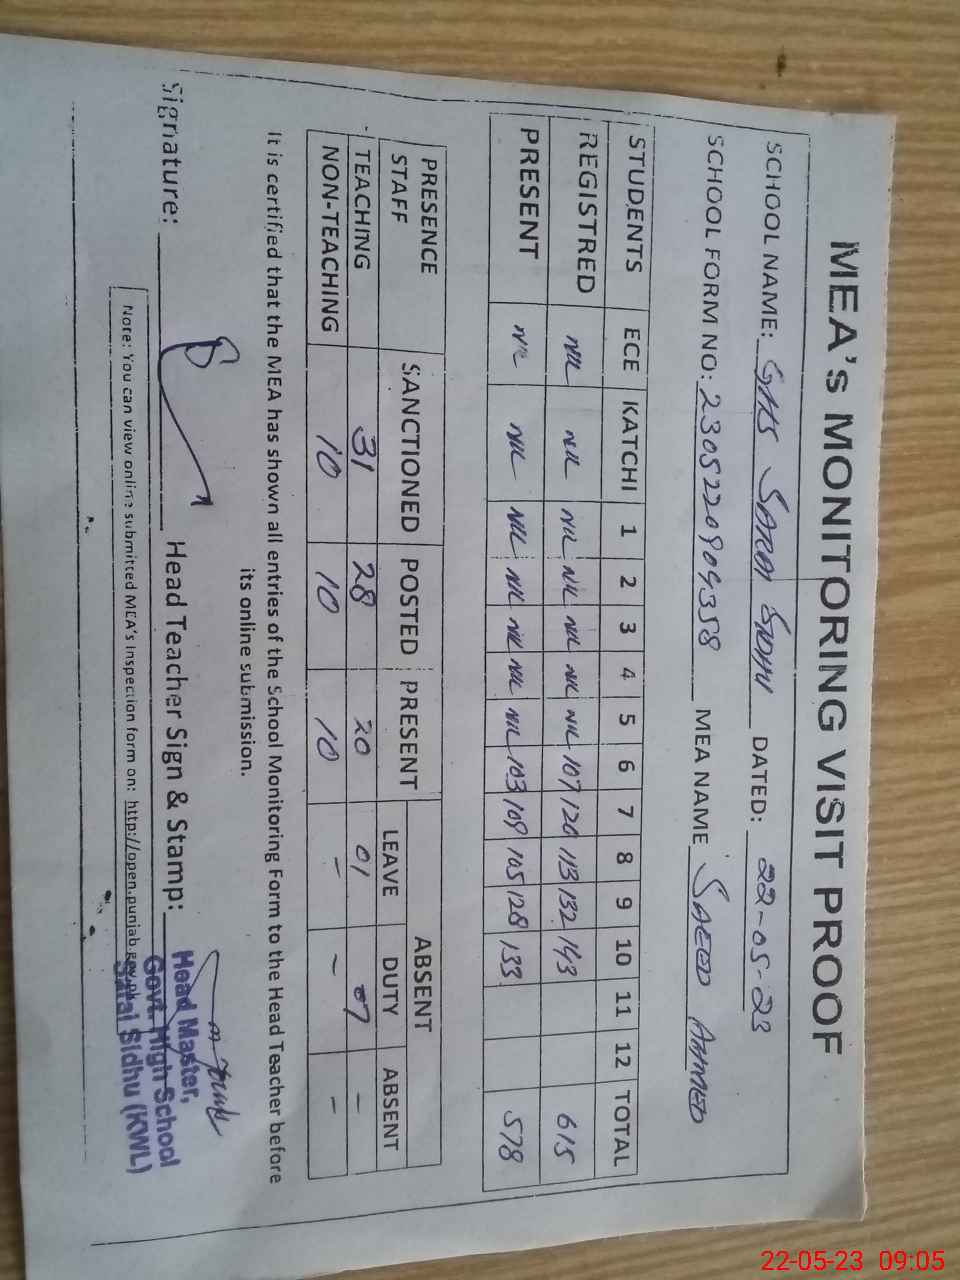 MEA's MONITORING VISIT PROOF
SCHOOL NAME: GHS SARAI SIDHU DATED: 22-05-23
SCHOOL FORM NO: 230522090358 MEA NAME SAEED AHMED
STUDENTS ECE KATCHI 1 2 3 4 5 6 7 8 9 10 11 12 TOTAL
REGISTRED NIL NIL NIL NIL NIL NIL NIL 107 120 113 132 143 615
PRESENT NIL NIL NIL NIL NIL NIL NIL 103 109 105 128 133 578
PRESENCE STAFF SANCTIONED POSTED PRESENT ABSENT
LEAVE DUTY ABSENT
TEACHING 31 28 20 01 07 -
NON-TEACHING 10 10 10 - - -
It is certified that the MEA has shown all entries of the School Monitoring Form to the Head Teacher before
its online submission.
Signature: Head Teacher Sign & Stamp:
Head Master,
Govt. High School
Sarai Sidhu (KWL)
Note: You can view online submitted MEA's Inspection form on: http://open.punjab.gov.pk
22-05-23 09:05